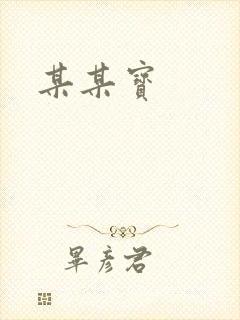 某某寶
畢彥君